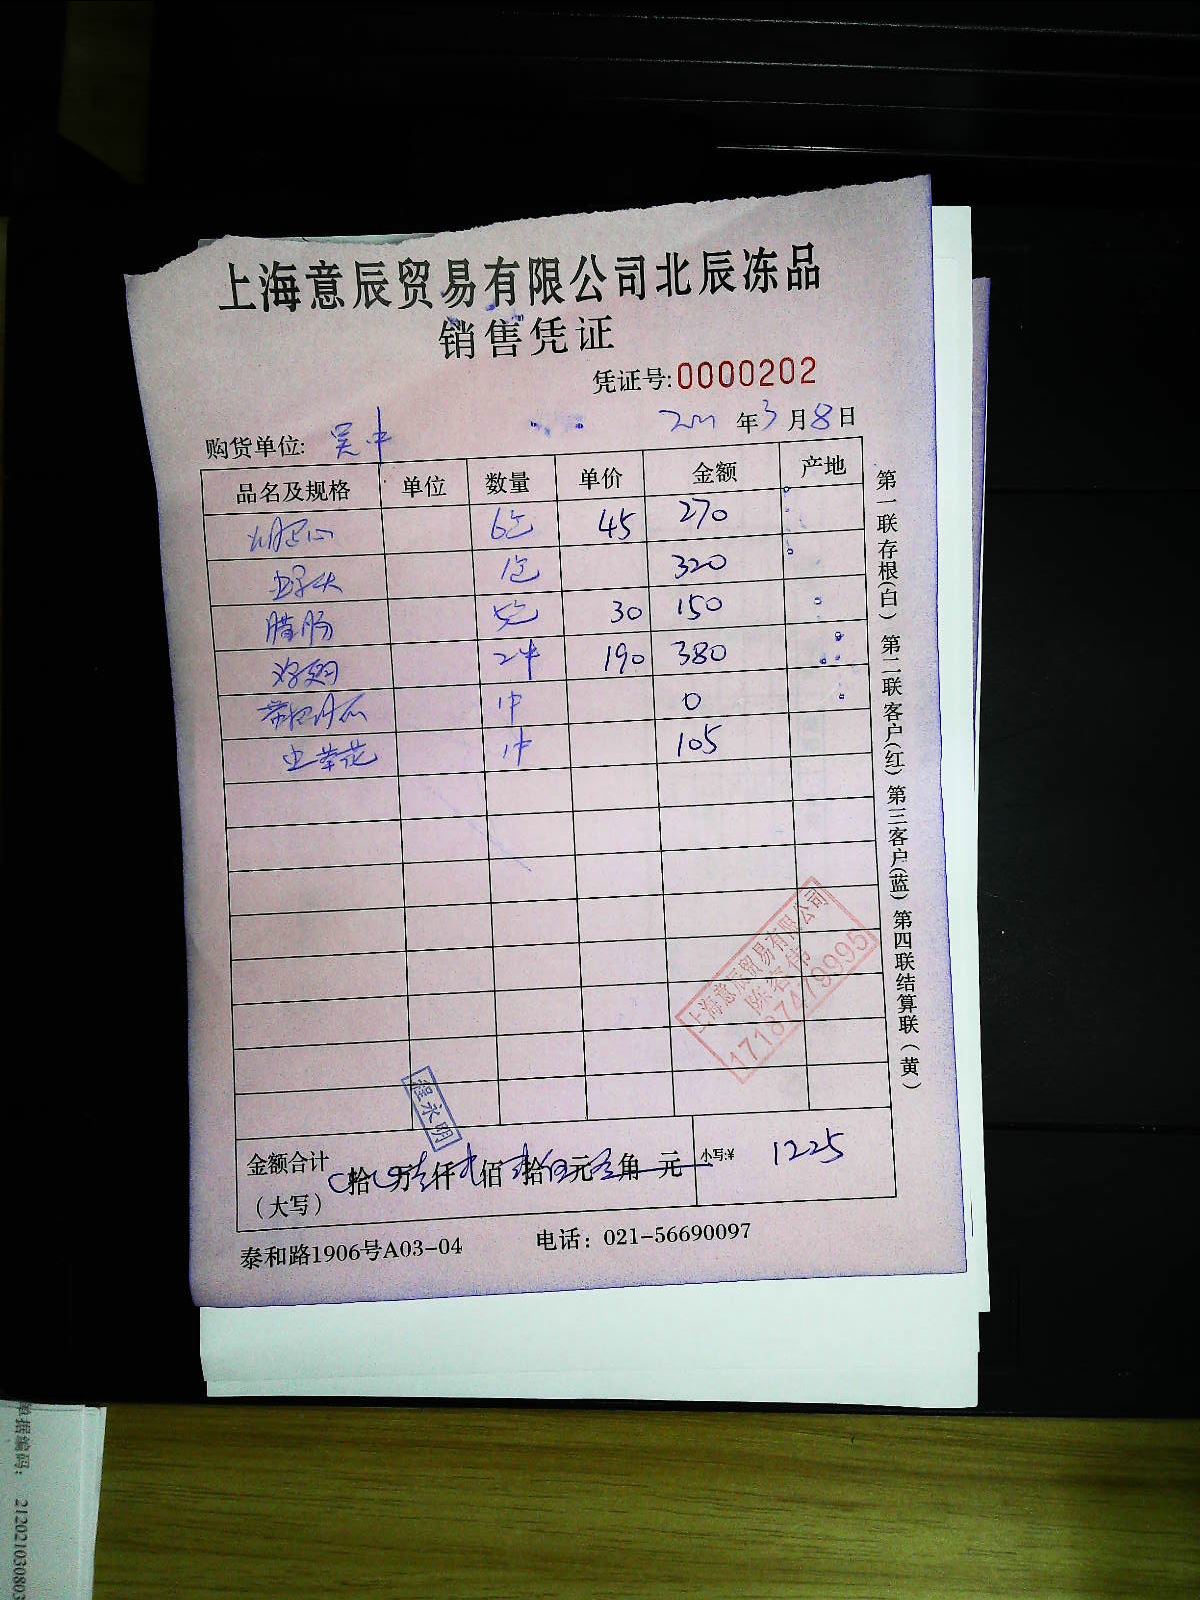 上海意辰贸易有限公司北辰冻品
销售凭证
凭证号:0000202
年3月8日
购货单位: 吴中
品名及规格 单位 数量 单价 金额 产地
6包 45 270
1包 320
腊肠 5包 30 150
2件 190 380
1件 0
1件 105
上海意辰贸易有限公司
17187479995
程永明
金额合计
(大写) 拾 万 仟 佰 拾 元 角 元 小写:¥ 1225
泰和路1906号A03-04 电话: 021-56690097
第一联存根(白) 第二联客户(红) 第三客户(蓝) 第四联结算联(黄)
单据编码: 212021030803